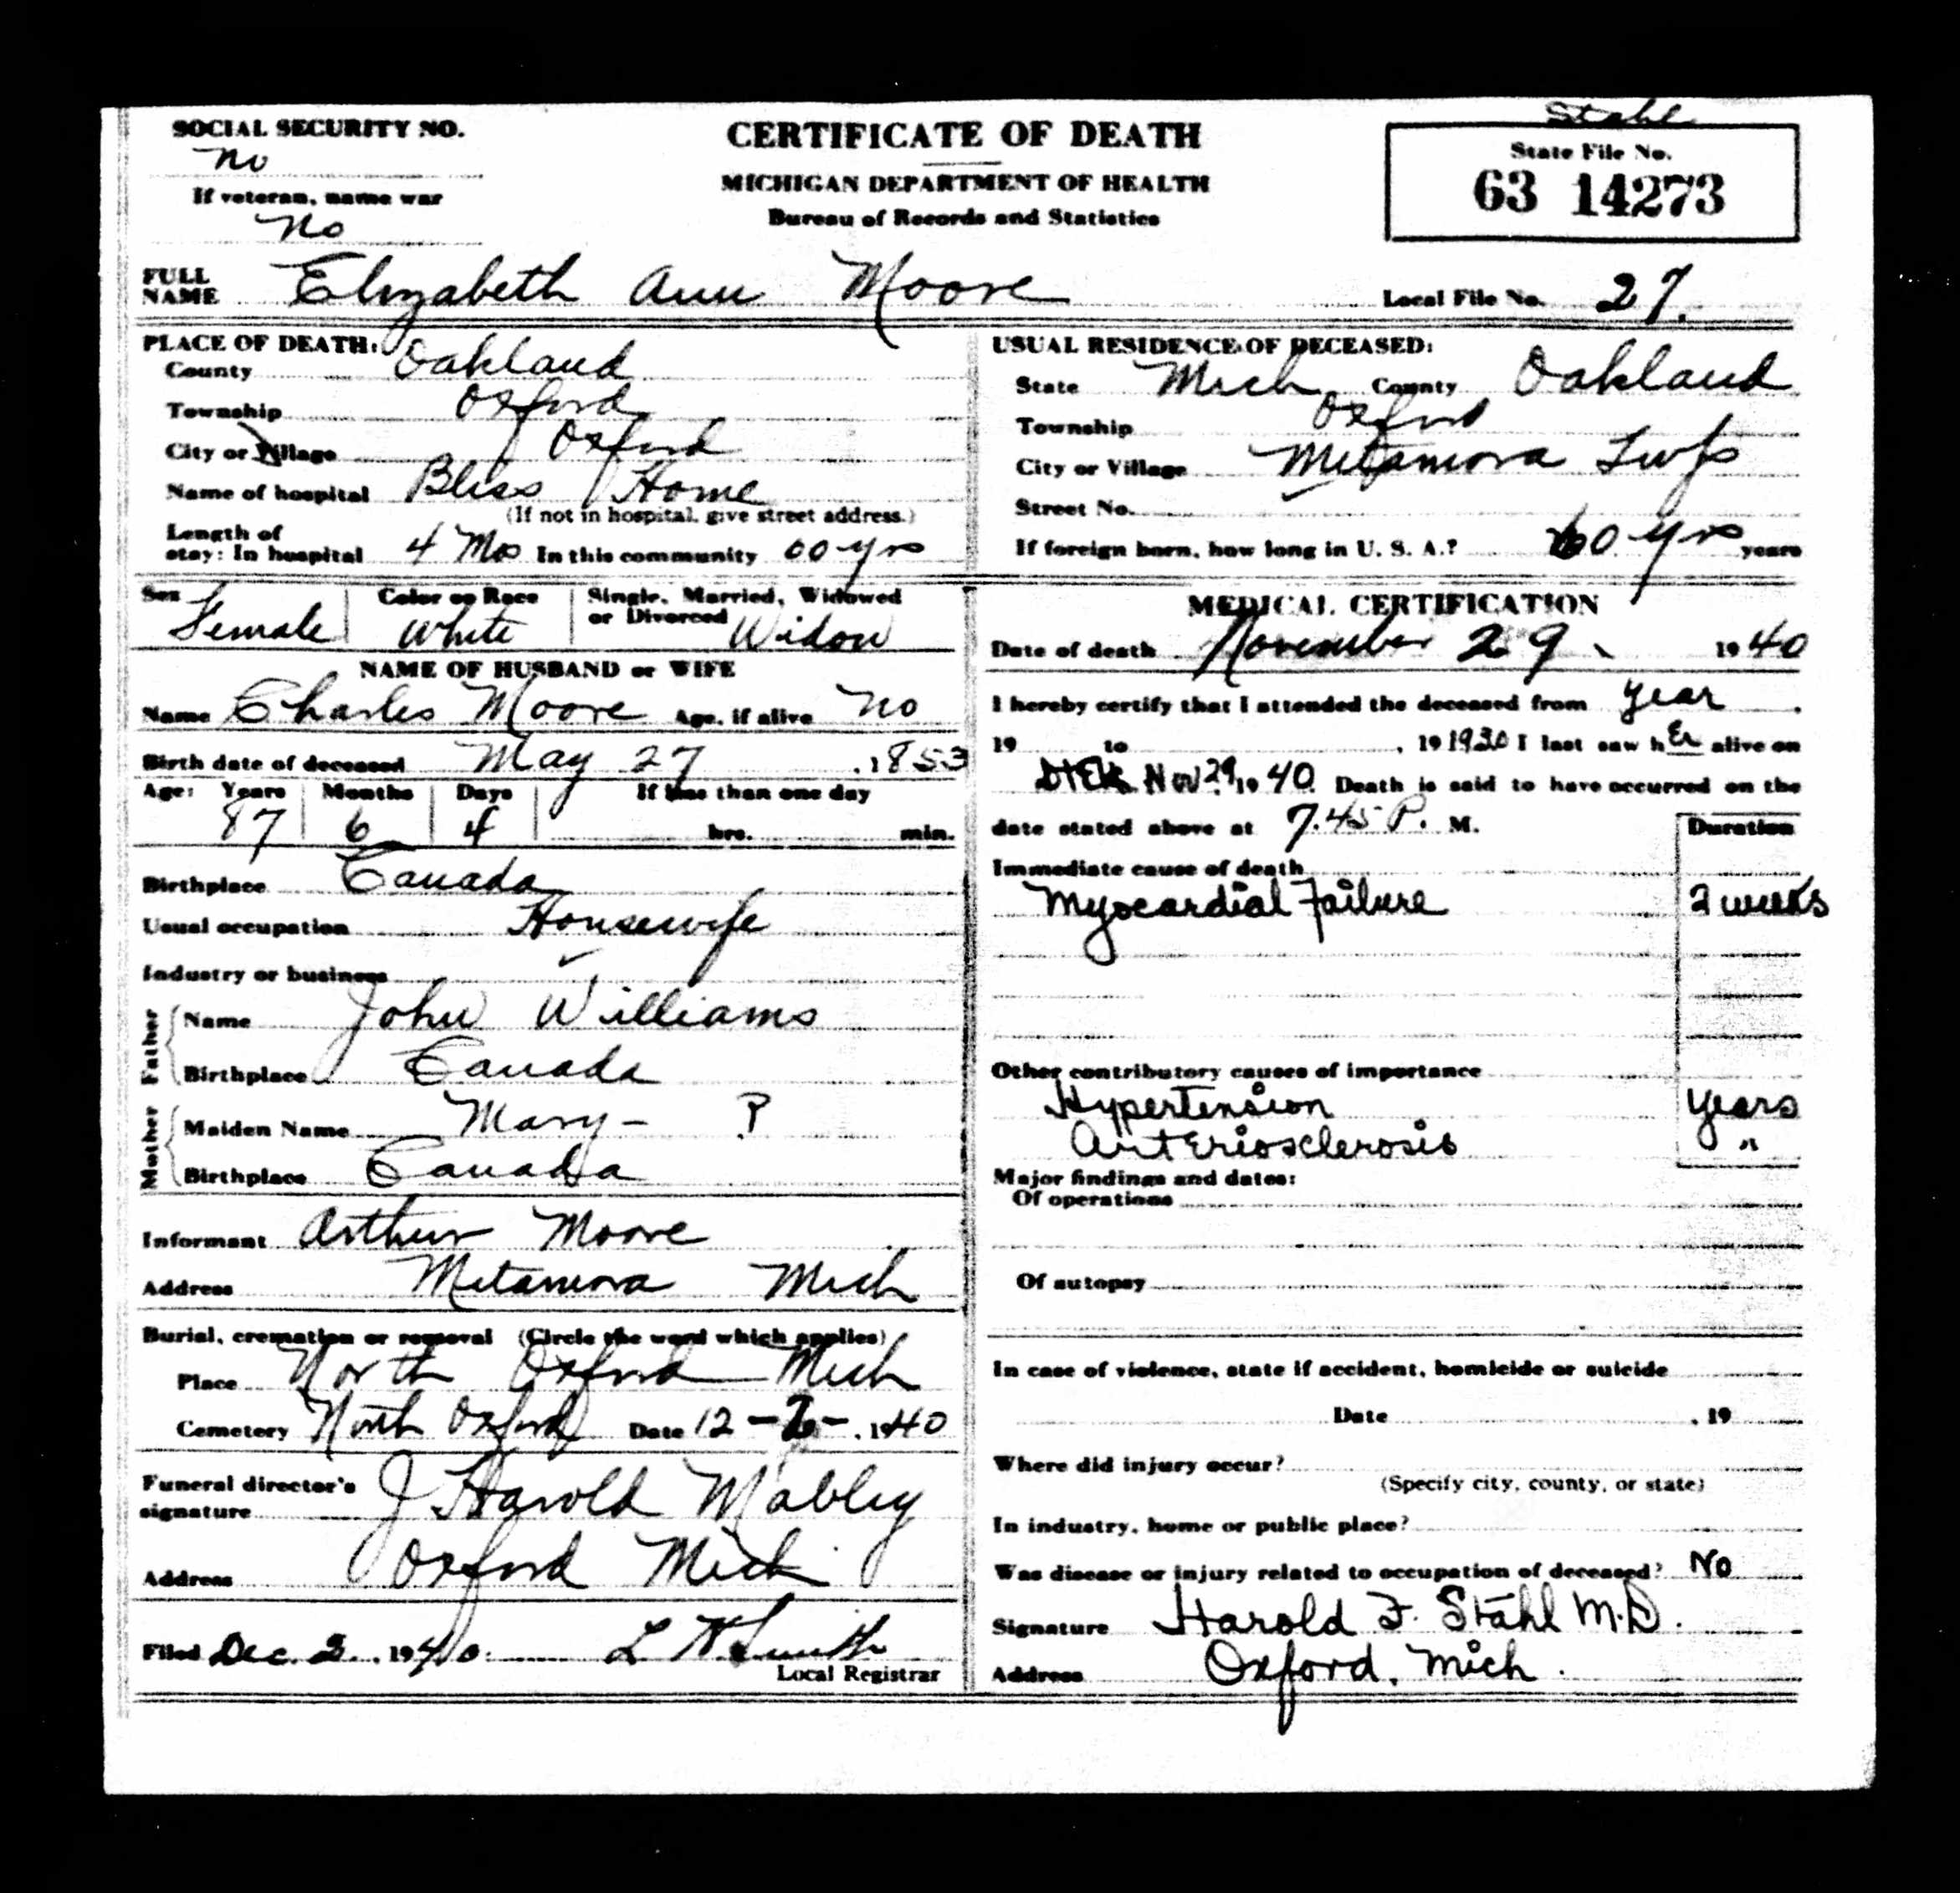 Stahl
SOCIAL SECURITY NO.
no
If veteran, name war
No
CERTIFICATE OF DEATH
MICHIGAN DEPARTMENT OF HEALTH
Bureau of Records and Statistics
State File No.
63 14273
FULL NAME Elizabeth Ann Moore
Local File No. 27.
PLACE OF DEATH:
County Oakland
Township Oxford
City or Village Oxford
Name of hospital Bliss Home
(If not in hospital, give street address.)
Length of
stay: In hospital 4 Mos In this community 60 yrs
USUAL RESIDENCE OF DECEASED:
State Mich County Oakland
Township Oxford
City or Village Metamora Twp
Street No.
If foreign born, how long in U. S. A.? 60 yrs years
Sex Female
Color or Race White
Single, Married, Widowed
or Divorced Widow
NAME OF HUSBAND or WIFE
Name Charles Moore Age, if alive no
Birth date of deceased May 27, 1853
Age: Years Months Days If less than one day
87 6 4 hrs. min.
Birthplace Canada
Usual occupation Housewife
Industry or business
Father
Name John Williams
Birthplace Canada
Mother
Maiden Name Mary - ?
Birthplace Canada
Informant Arthur Moore
Address Metamora Mich
Burial, cremation or removal (Circle the word which applies)
Place North Oxford Mich
Cemetery North Oxford Date 12-2-, 1940
Funeral director's
signature J Harold Mabley
Address Oxford Mich
Filed Dec. 2, 1940. L W Smith
Local Registrar
MEDICAL CERTIFICATION
Date of death November 29, 1940
I hereby certify that I attended the deceased from year,
19 to , 19 1930 I last saw her alive on
Nov. 29, 1940. Death is said to have occurred on the
date stated above at 7.45 P. M.
Duration
Immediate cause of death
Myocardial Failure 2 weeks
Other contributory causes of importance
Hypertension years
Arteriosclerosis "
Major findings and dates:
Of operations
Of autopsy
In case of violence, state if accident, homicide or suicide
Date , 19
Where did injury occur?
(Specify city, county, or state)
In industry, home or public place?
Was disease or injury related to occupation of deceased? No
Signature Harold F. Stahl M.D.
Address Oxford, Mich.